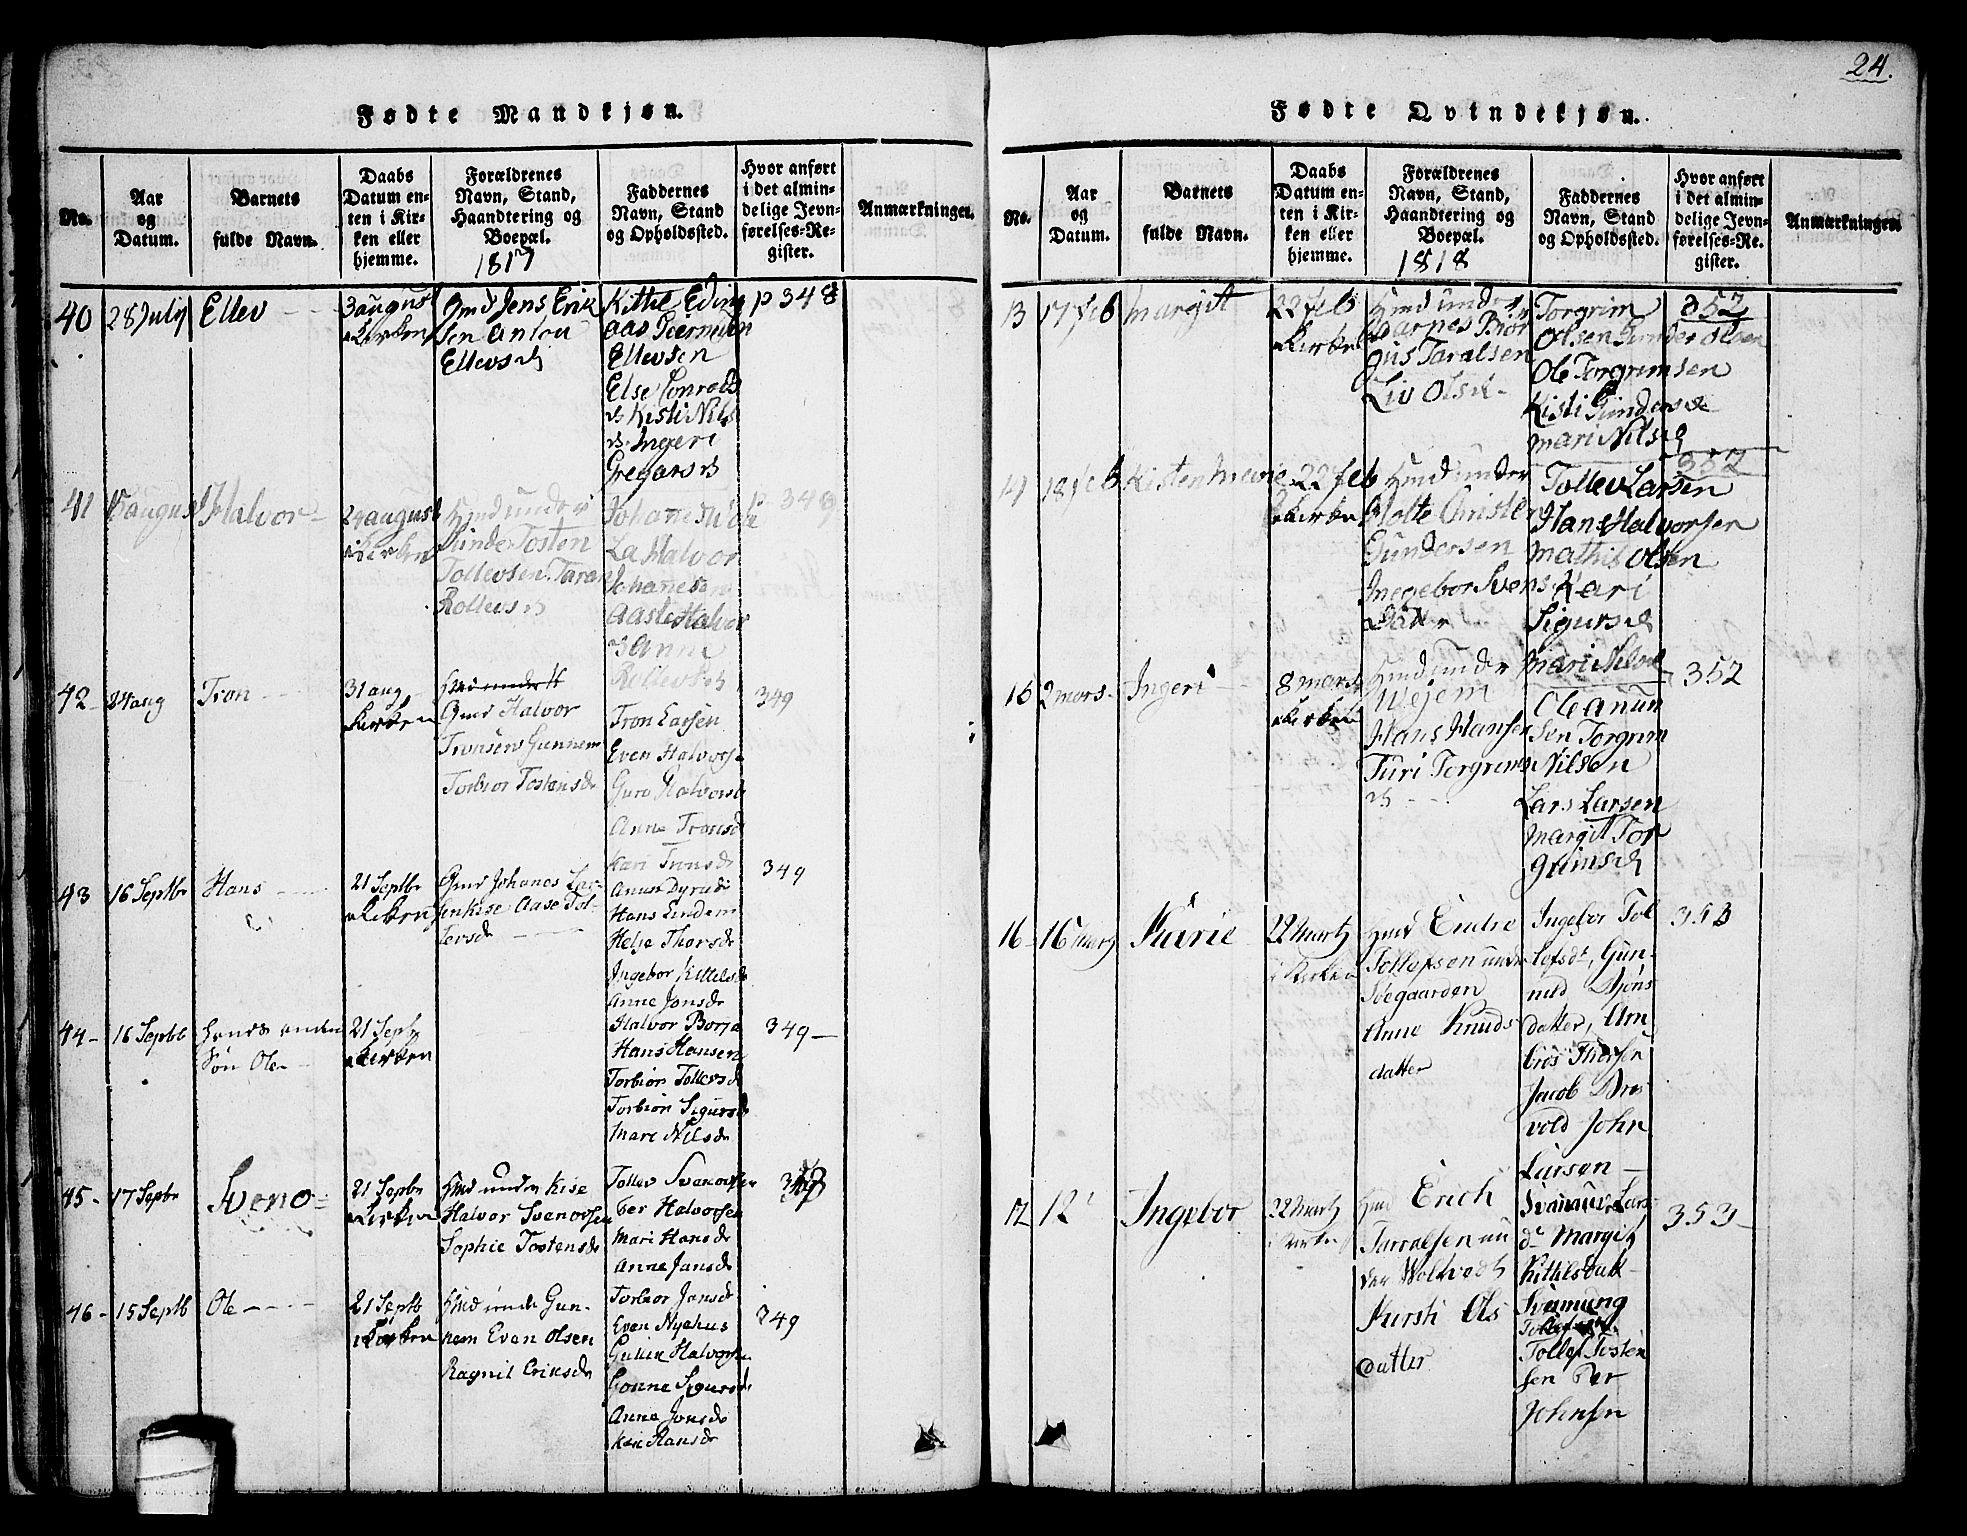 24.
Fødte Mandkjøn.
No.
Aar
og
Datum.
Barnets
fulde Navn.
Daabs
Datum en-
ten i Kir-
ken eller
hjemme.
Forældrenes
Navn, Stand,
Haandtering og
Boepæl.
1817
Faddernes
Navn, Stand
og Opholdssted.
Hvor anført
i det almin-
delige Jevn-
førelses-Re-
gister.
Anmærkninger.
40
28 July
Ellev
3 august
i Kirken
Gmd Jens Erik
sen Anlou
Ellevs d
Kittil Eding
aas
Ellevsen
Else Conrads
d Kisti Nils
d Ingeri
Gregars d
p 348
41
15 august
Halvor
24 august
i Kirken
Hmd under
Linde Tosten
Tollevsen Taran
Rollevs d
Johanes
La Halvor
Johanesen
Aaste Halvor
d Anne
Rollevs d
p 349
42
24 aug
Tron
31 aug
i Kirken
Hmd under H
Gmd Halvor
Tronsen Gunnem
Torbior Tostensdr
Tron Larsen
Even Halvors.
Guro Halvorsd
Anne Tronsd
Kari Tronsdr
349
43
16 Septbr
Hans
21 Septbr
i Kirken
Gmd Johanes Lar
sen Kise Aase Tol-
levsdr
Hans Lindem
Helje Thorsdr
Ingebor Kittelsdr
Anne Jonsdr
349
44
16 Septbr
hendes anden
Søn Ole
21 Septbr
i Kirken
Halvor Borja
Hans Hansen
Torbior Tollevsd
Torbiør Sigursdr
Mari Nilsdr
349
45
17 Septbr
Sveno
21 Septbr
i Kirken
Hmd under Kise
Halvor Svenovsen
Sophie Tostensdr
Tollev Svenovsen
Per Halvorsen
Mari Hansdr
Anne Jansdr
46
15 Septb
Ole
21 Septb
i Kirken
Hmd unde Gun-
nem Even Olsen
Ragnil Eriksdr
Torbior Jansdr
Even Nyehus
Gullik Halvorsen
Gonne Sigursdr
Anne Jonsdr
Kari Hansdr
349
Fødte Qvindekjøn.
No.
Aar
og
Datum.
Barnets
fulde Navn.
Daabs
Datum en-
ten i Kir-
ken eller
hjemme.
Forældrenes
Navn, Stand,
Haandtering og
Boepæl.
1818
Faddernes
Navn, Stand
og Opholdssted.
Hvor anført
i det almin-
delige Jevn-
førelses-Re-
gister.
Anmærkninger.
13
17 feb
Margit
22 feb
i Kirken
Hmd under
Aarnes Biør
gus Taralsen
Liv Olsd
Torgrim
Olsen Gunder Olsen
Ole Torgrimsen
Kisti Gundersd
Mari Nilsd
352
18 feb
Kisten Marie
22 feb
i Kirken
Hmd under
Holte Christen
Gundersen
Ingebor Svens
Datter
Tollev Larsen
Hans Halvorsen
Mathis Olsen
Kari
Sigursd
Mari Nilsd
352
2 mars
Ingeri
8 mars
i Kirken
Hmd under
Wejem
Hans Hansen
Turi Torgrims
d
Ole Anun
sen Torgrim
Nilsen
Lars Larsen
Margit Tor
grimsd
352
16
16 Marts
Karie
22 Marts
i Kirken
Hmd Endre
Tollefsen under
Søegaarden
Anne Knuds
datter
Ingebor Tol
lefsdr, Gun-
nild Biøns
datter, Am-
bros Thorsen
Jacob Ares
vold John
Larsen
353
17
12
Ingebor
22 Marts
i Kirken
Hmd Erich
Tarralsen un
der Wolvedt
Kirsti Ols
datter
Svanaug Lars
dr Margit
Kittilsdatt
Svenung
Tollef Tosten
sen Per
Johnsen
353